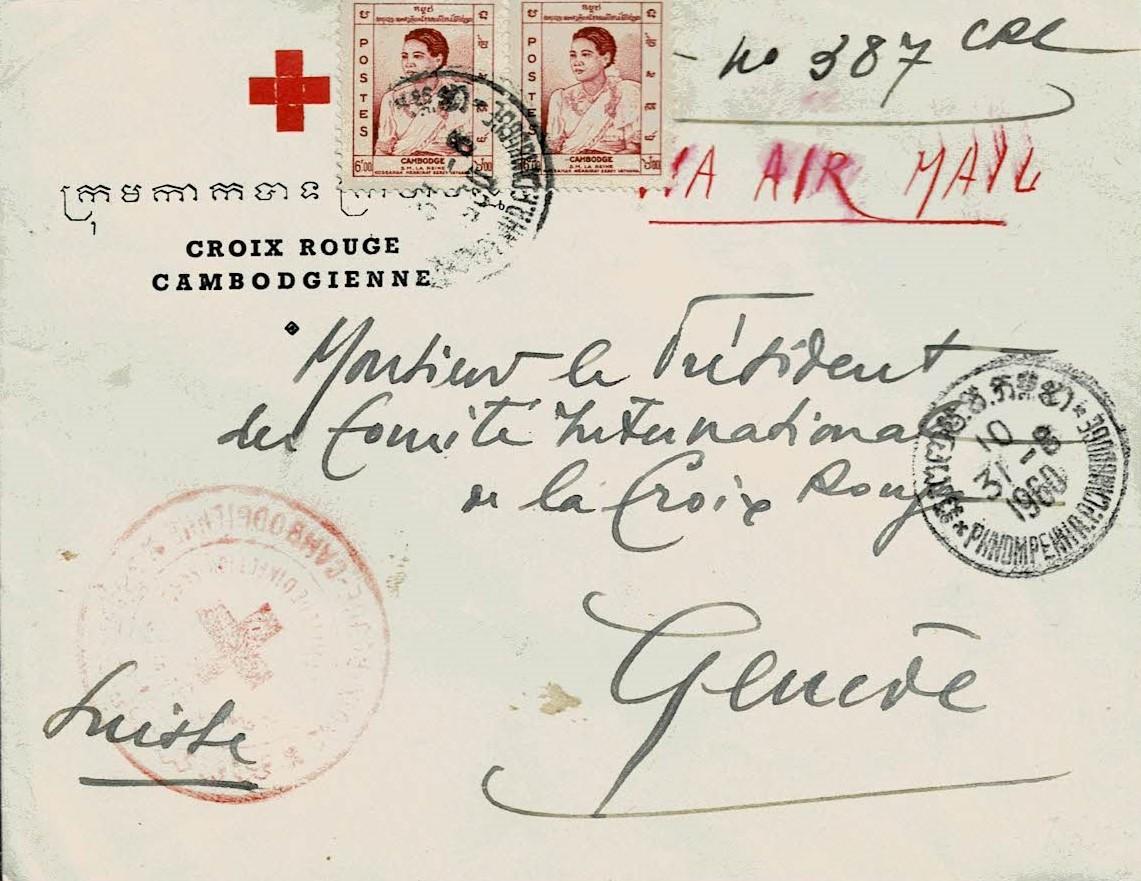 POSTES
6.00
CAMBODGE
S.M. LA REINE
KOSSAMAK NEARIRAT SEREY VATHANA
POSTES
CAMBODGE
S.M. LA REINE
KOSSAMAK NEARIRAT SEREY VATHANA
No 387 CRC
VIA AIR MAIL
ក្រុមកាកបាទ
CROIX ROUGE
CAMBODGIENNE
Monsieur le Président
du Comité International
de la Croix Rouge
Genève
Suisse
10-8
31
1960
PHNOMPENH R.P. CAMBODGE